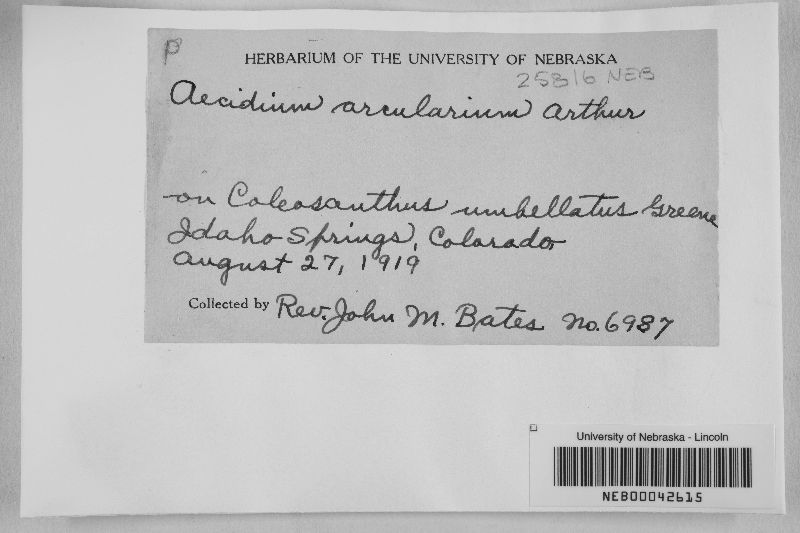 P
HERBARIUM OF THE UNIVERSITY OF NEBRASKA
25816 NEB
Aecidium arcularium Arthur
on Coleosanthus umbellatus Greene
Idaho Springs, Colorado
August 27, 1919
Collected by Rev. John M. Bates No. 6987
University of Nebraska - Lincoln
NEB00042615